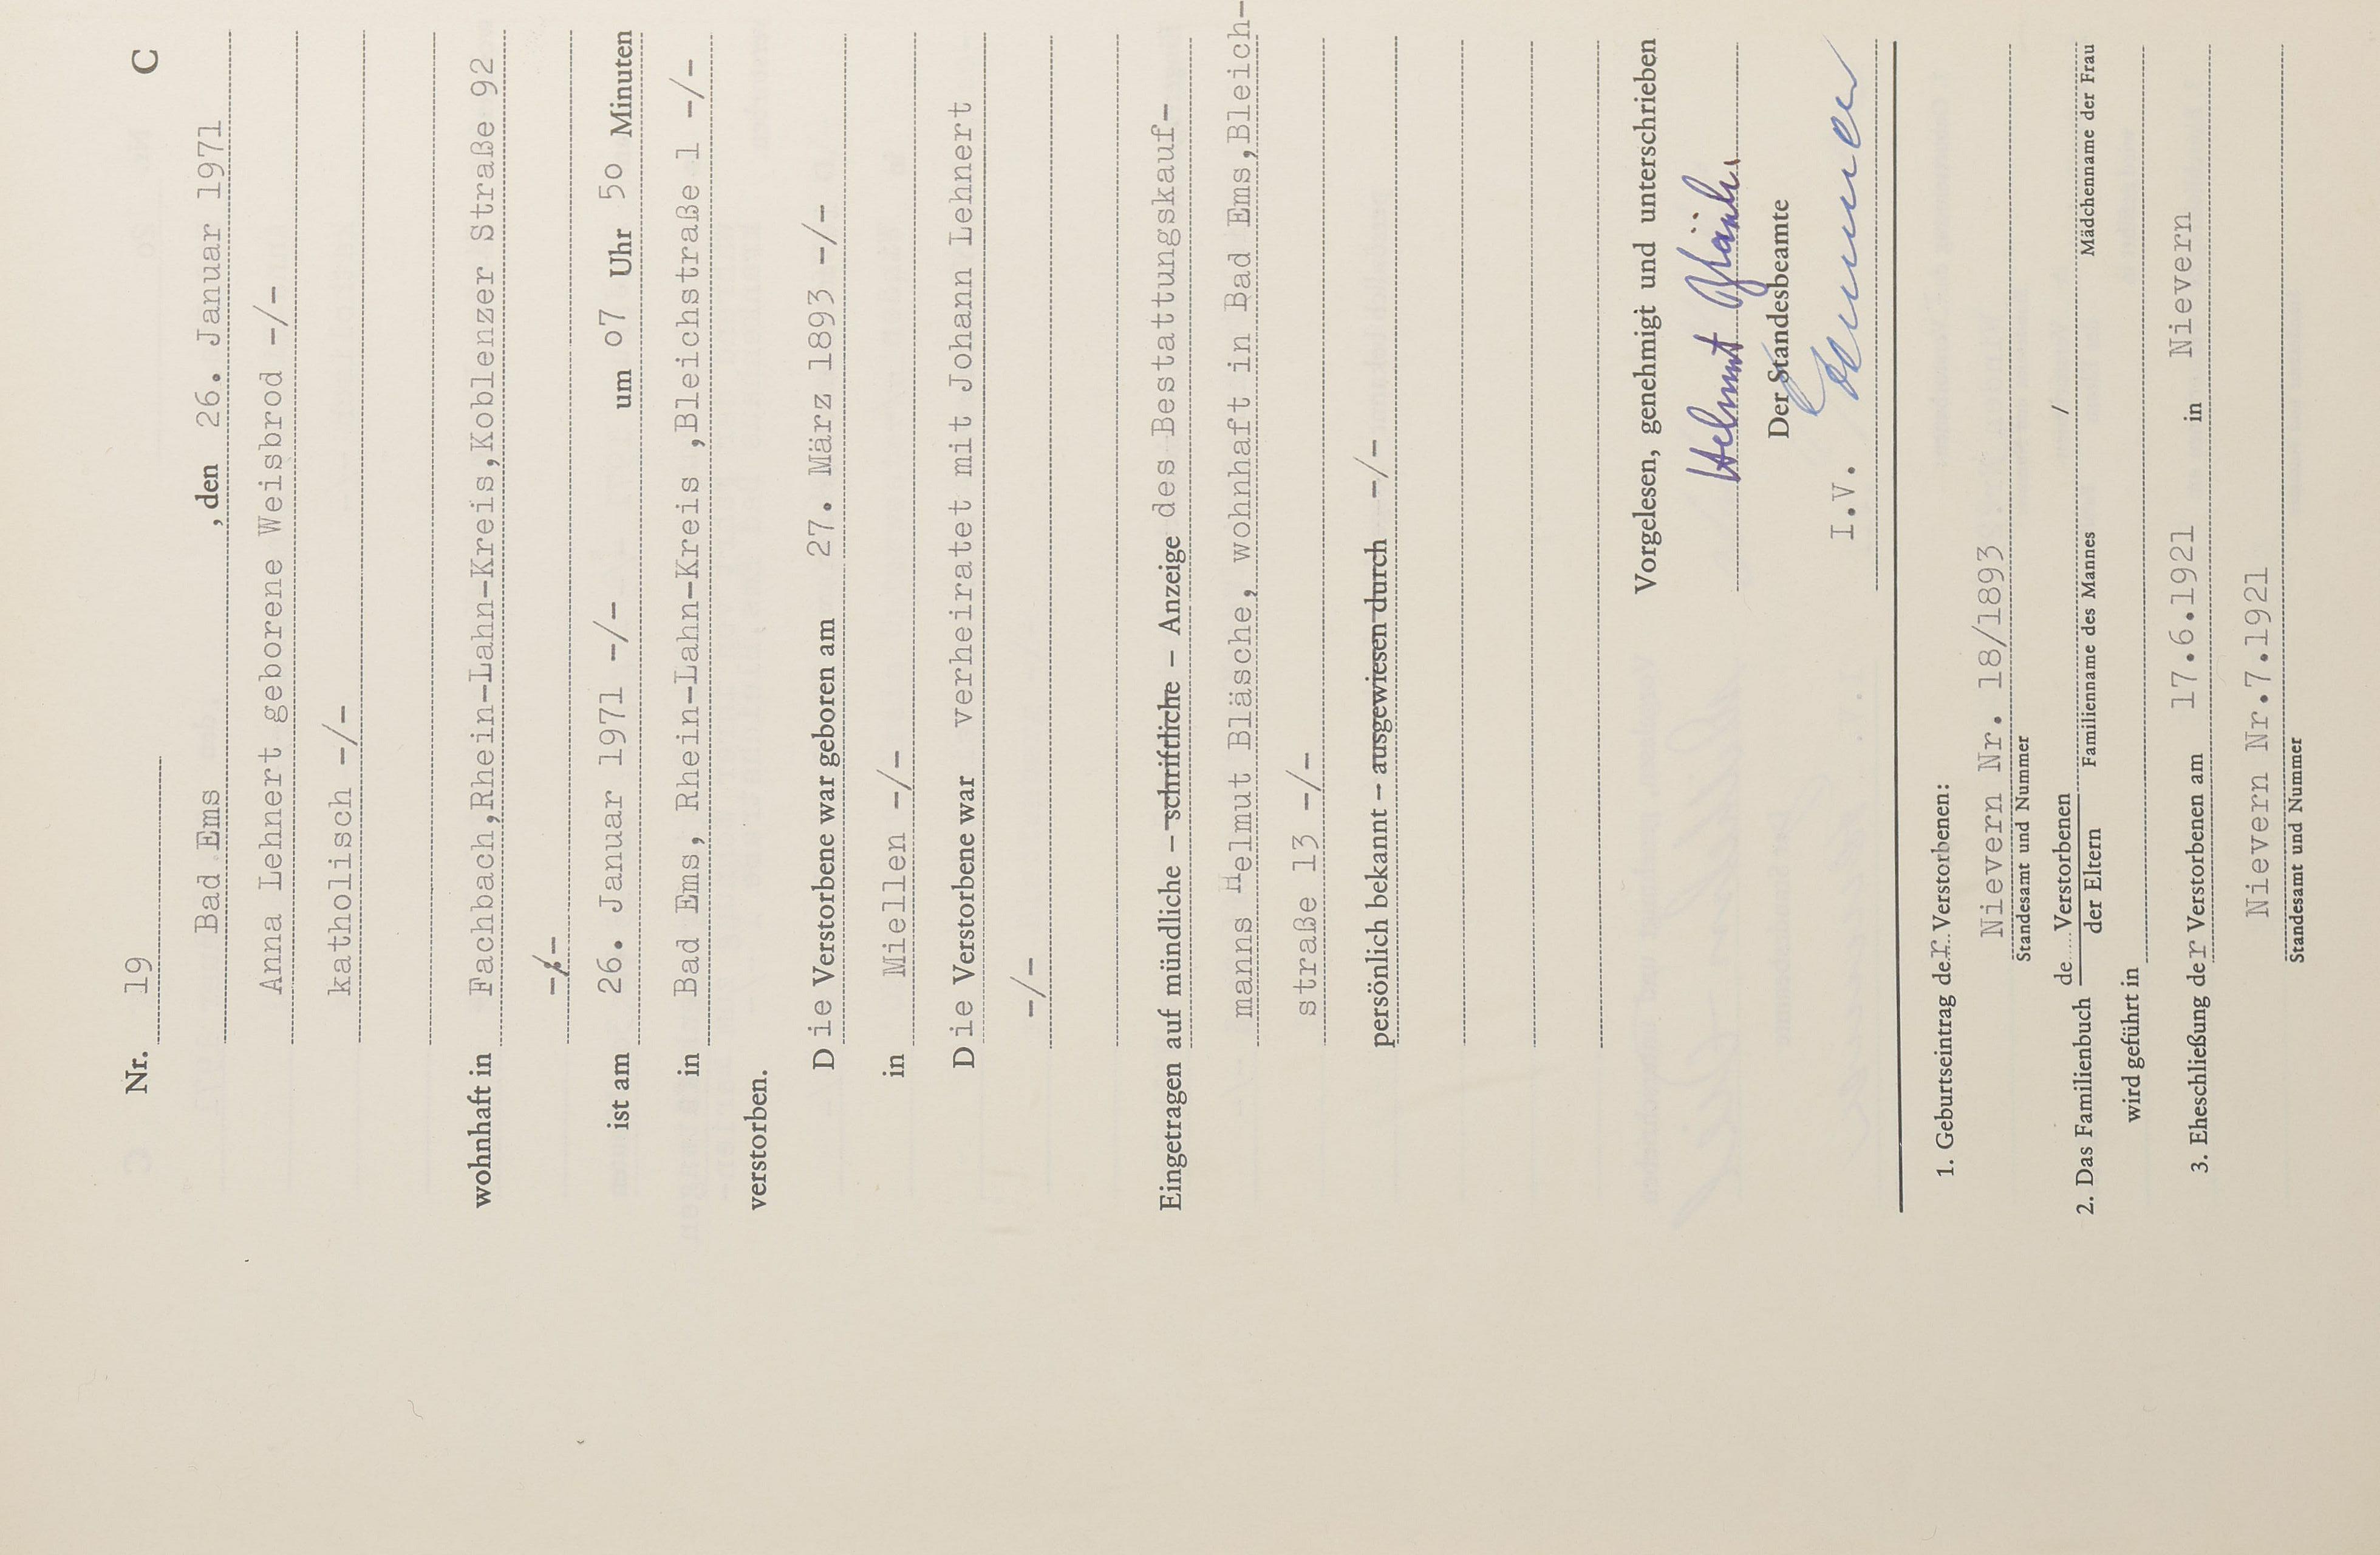 Nr. 19 C
Bad Ems , den 26. Januar 1971
Anna Lehnert geborene Weisbrod -/-
katholisch -/-
wohnhaft in Fachbach,Rhein-Lahn-Kreis,Koblenzer Straße 92
-/-
ist am 26. Januar 1971 -/- um o7 Uhr 5o Minuten
in Bad Ems, Rhein-Lahn-Kreis ,Bleichstraße 1 -/-
verstorben.
Die Verstorbene war geboren am 27. März 1893 -/-
in Miellen -/-
Die Verstorbene war verheiratet mit Johann Lehnert
-/-
Eingetragen auf mündliche - schriftliche - Anzeige des Bestattungskauf-
manns Helmut Bläsche, wohnhaft in Bad Ems,Bleich-
straße 13 -/-
persönlich bekannt - ausgewiesen durch -/-
Vorgelesen, genehmigt und unterschrieben
Helmut Bläsche
Der Standesbeamte
I.V.
1. Geburtseintrag der Verstorbenen:
Nievern Nr. 18/1893
Standesamt und Nummer
2. Das Familienbuch de Verstorbenen /
der Eltern Familienname des Mannes Mädchenname der Frau
wird geführt in
3. Eheschließung der Verstorbenen am 17.6.1921 in Nievern
Nievern Nr.7.1921
Standesamt und Nummer